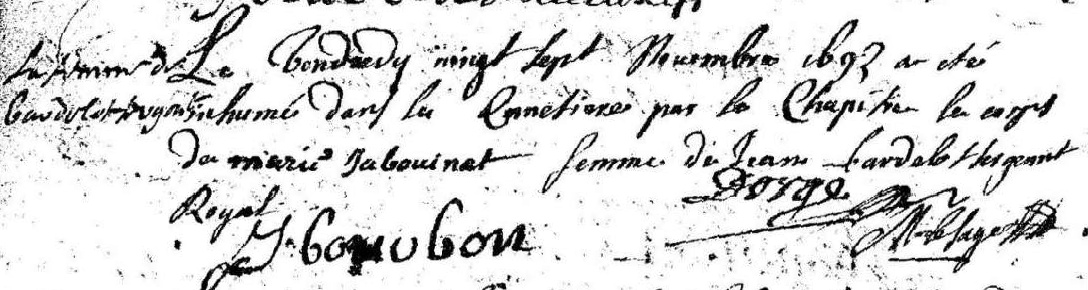 La femme de
bardelot sergent
Le Vendredy vingt sept Novembre 1693 a eté
inhumé dans le Cimetiere par le Chapitre le corps
de marie Jabouinat femme de Jean bardelot sergeant
Royal
Dorge
J. bourbon
M. lesage